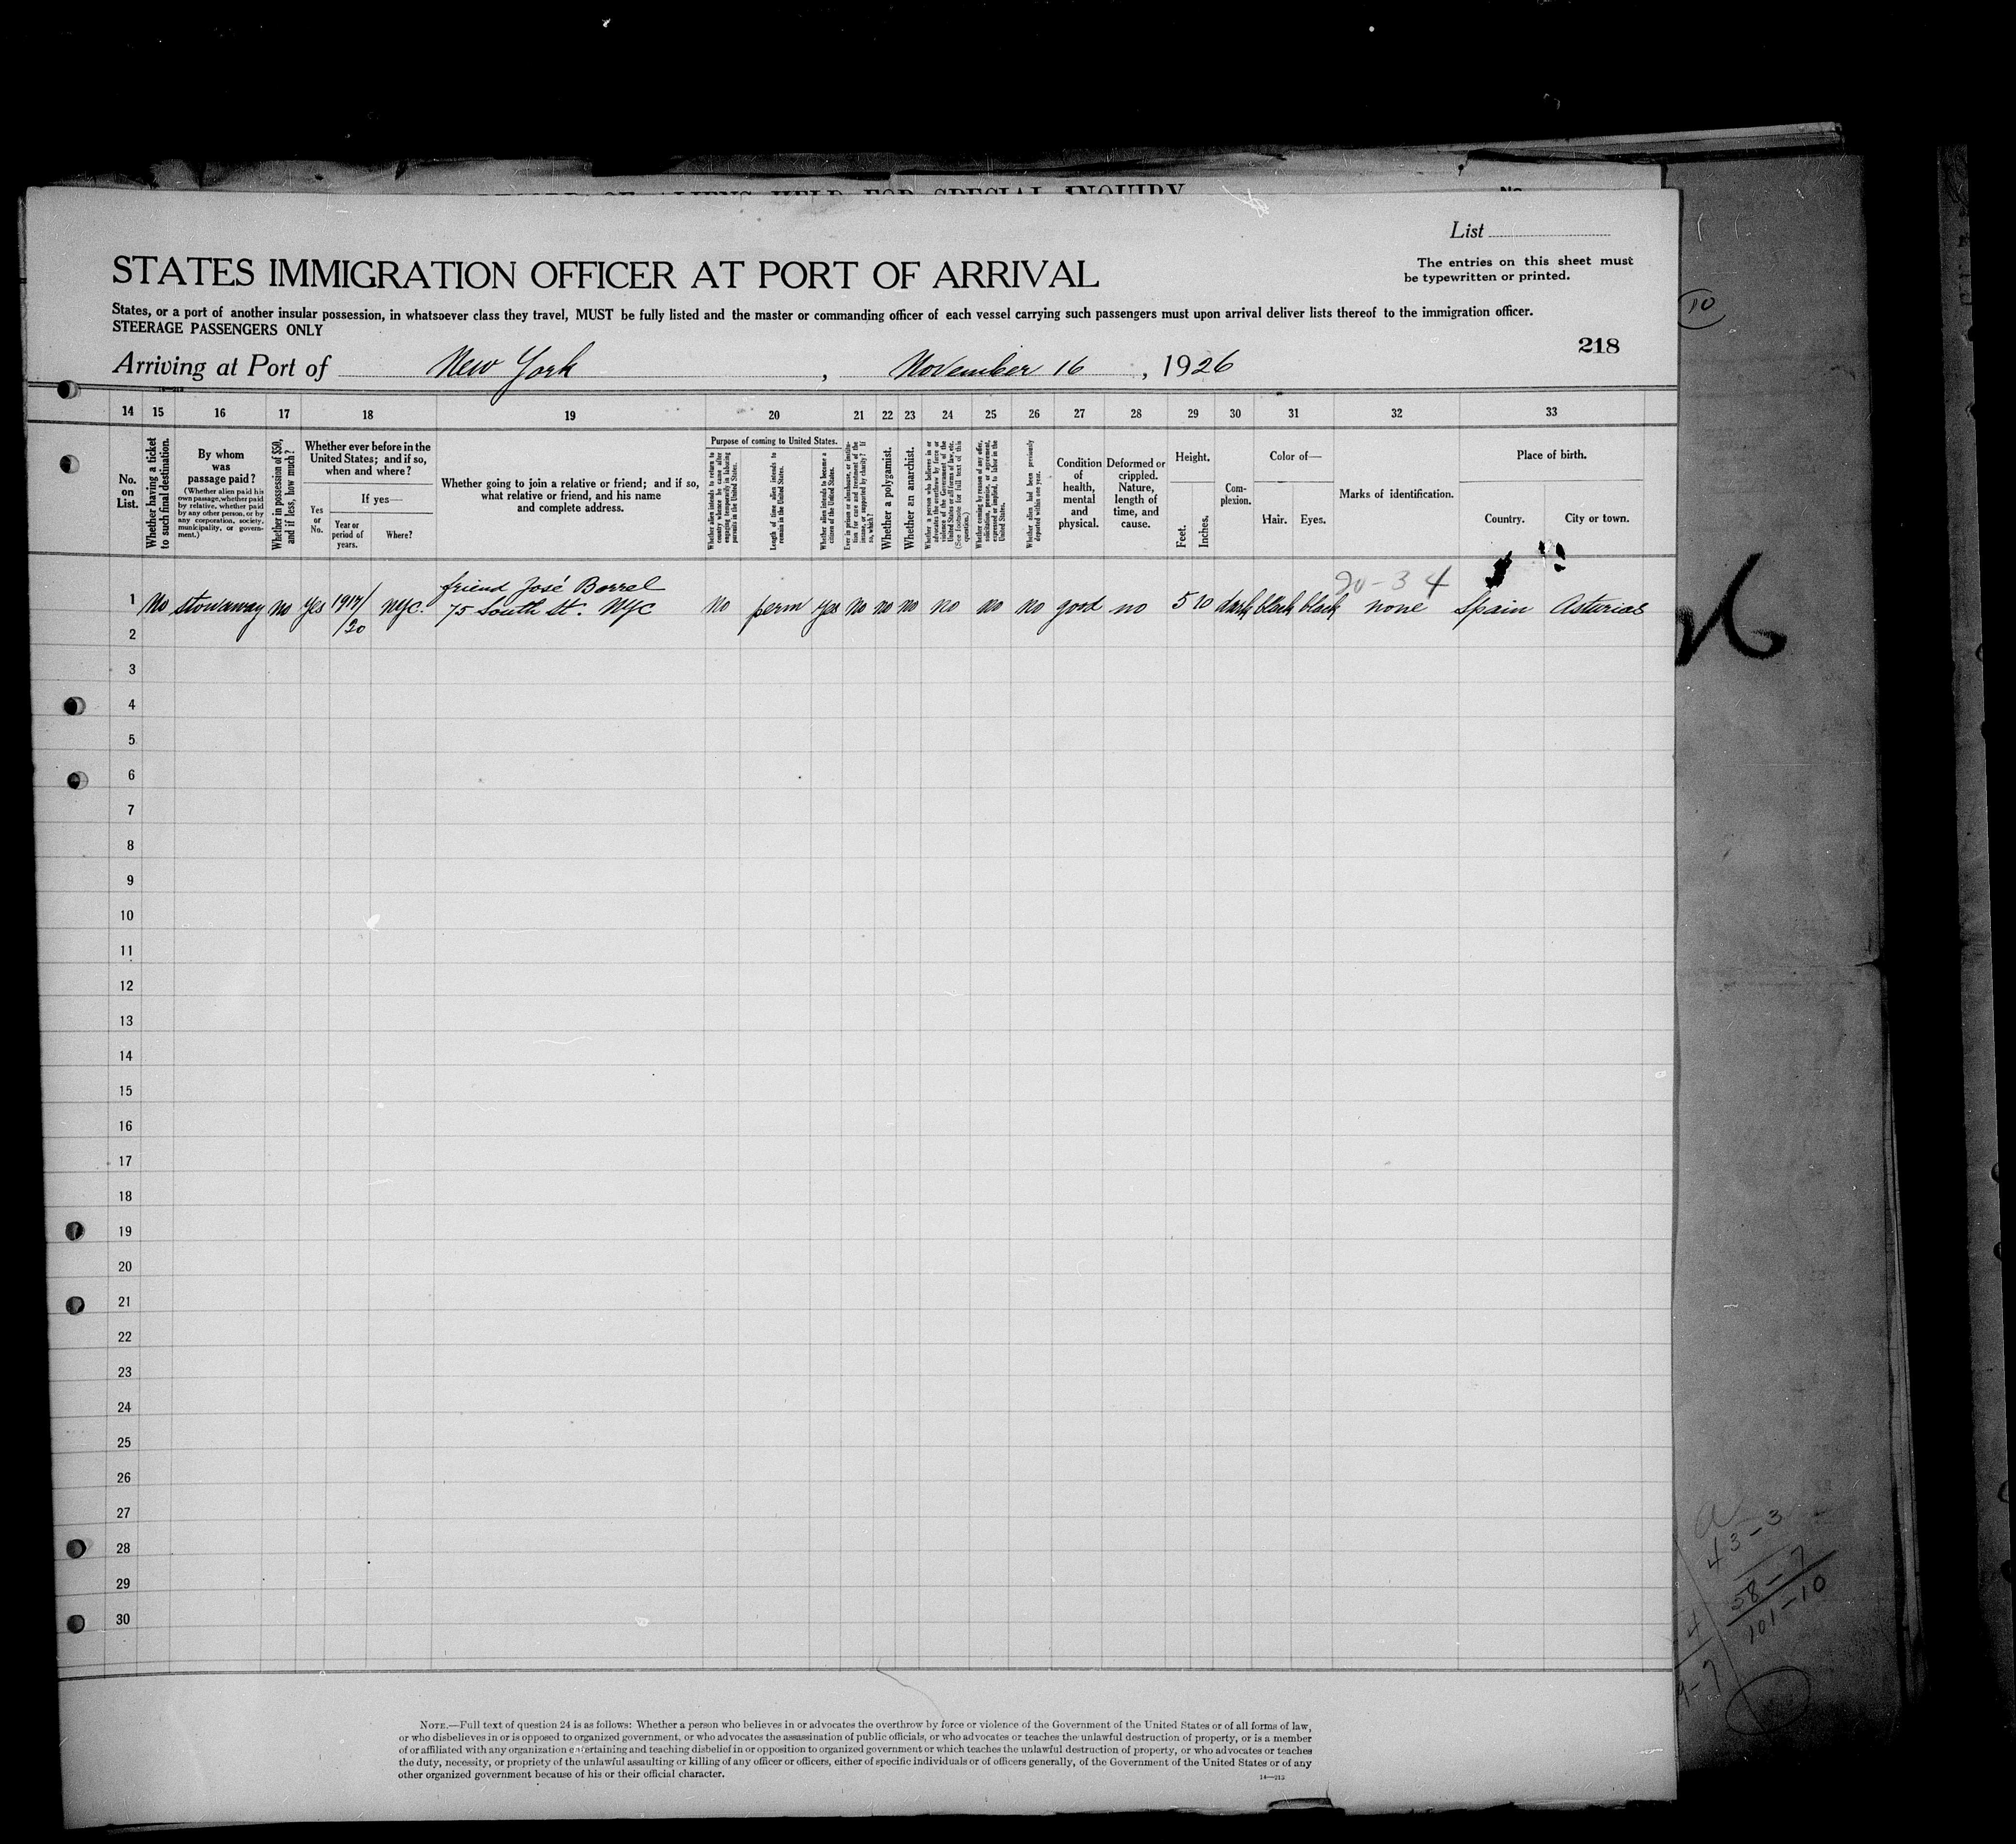 RECORD OF ALIENS HELD FOR SPECIAL INQUIRY
No.
List
STATES IMMIGRATION OFFICER AT PORT OF ARRIVAL
The entries on this sheet must
be typewritten or printed.
States, or a port of another insular possession, in whatsoever class they travel, MUST be fully listed and the master or commanding officer of each vessel carrying such passengers must upon arrival deliver lists thereof to the immigration officer.
STEERAGE PASSENGERS ONLY
218
Arriving at Port of New York, November 16, 1926
14 15 16 17 18 19 20 21 22 23 24 25 26 27 28 29 30 31 32 33
No. on List.
Whether having a ticket to such final destination.
By whom was passage paid?
(Whether alien paid his own passage, whether paid by relative, whether paid by any other person, or by any corporation, society, municipality, or government.)
Whether in possession of $50, and if less, how much?
Whether ever before in the United States; and if so, when and where?
Yes or No.
If yes—
Year or period of years.
Where?
Whether going to join a relative or friend; and if so, what relative or friend, and his name and complete address.
Purpose of coming to United States.
Whether alien intends to return to country whence he came after engaging temporarily in laboring pursuits in the United States.
Length of time alien intends to remain in the United States.
Whether alien intends to become a citizen of the United States.
Ever in prison or almshouse, or institution for care and treatment of the insane, or supported by charity? If so, which?
Whether a polygamist.
Whether an anarchist.
Whether a person who believes in or advocates the overthrow by force or violence of the Government of the United States or all forms of law, etc. (See footnote for full text of this question.)
Whether coming by reason of any offer, solicitation, promise, or agreement, expressed or implied, to labor in the United States.
Whether alien had been previously deported within one year.
Condition of health, mental and physical.
Deformed or crippled. Nature, length of time, and cause.
Height.
Feet. Inches.
Complexion.
Color of—
Hair. Eyes.
Marks of identification.
Place of birth.
Country. City or town.
20-34
friend José Borrel
1 No stowaway no yes 1917/20 NYC. 75 South St. NYC no perm yes no no no no no no good no 5 10 dark black black none Spain Asturias
2
3
4
5
6
7
8
9
10
11
12
13
14
15
16
17
18
19
20
21
22
23
24
25
26
27
28
29
30
NOTE.—Full text of question 24 is as follows: Whether a person who believes in or advocates the overthrow by force or violence of the Government of the United States or of all forms of law,
or who disbelieves in or is opposed to organized government, or who advocates the assassination of public officials, or who advocates or teaches the unlawful destruction of property, or is a member
of or affiliated with any organization entertaining and teaching disbelief in or opposition to organized government or which teaches the unlawful destruction of property, or who advocates or teaches
the duty, necessity, or propriety of the unlawful assaulting or killing of any officer or officers, either of specific individuals or of officers generally, of the Government of the United States or of any
other organized government because of his or their official character.
14—213
10
43-3
58-7
101-10
4
9-7